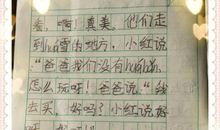 看，啊！真美，他们走
的地方，小红说
：“爸爸我们没有
怎么玩呀！爸爸说：“我
去买，好吗？小红说好